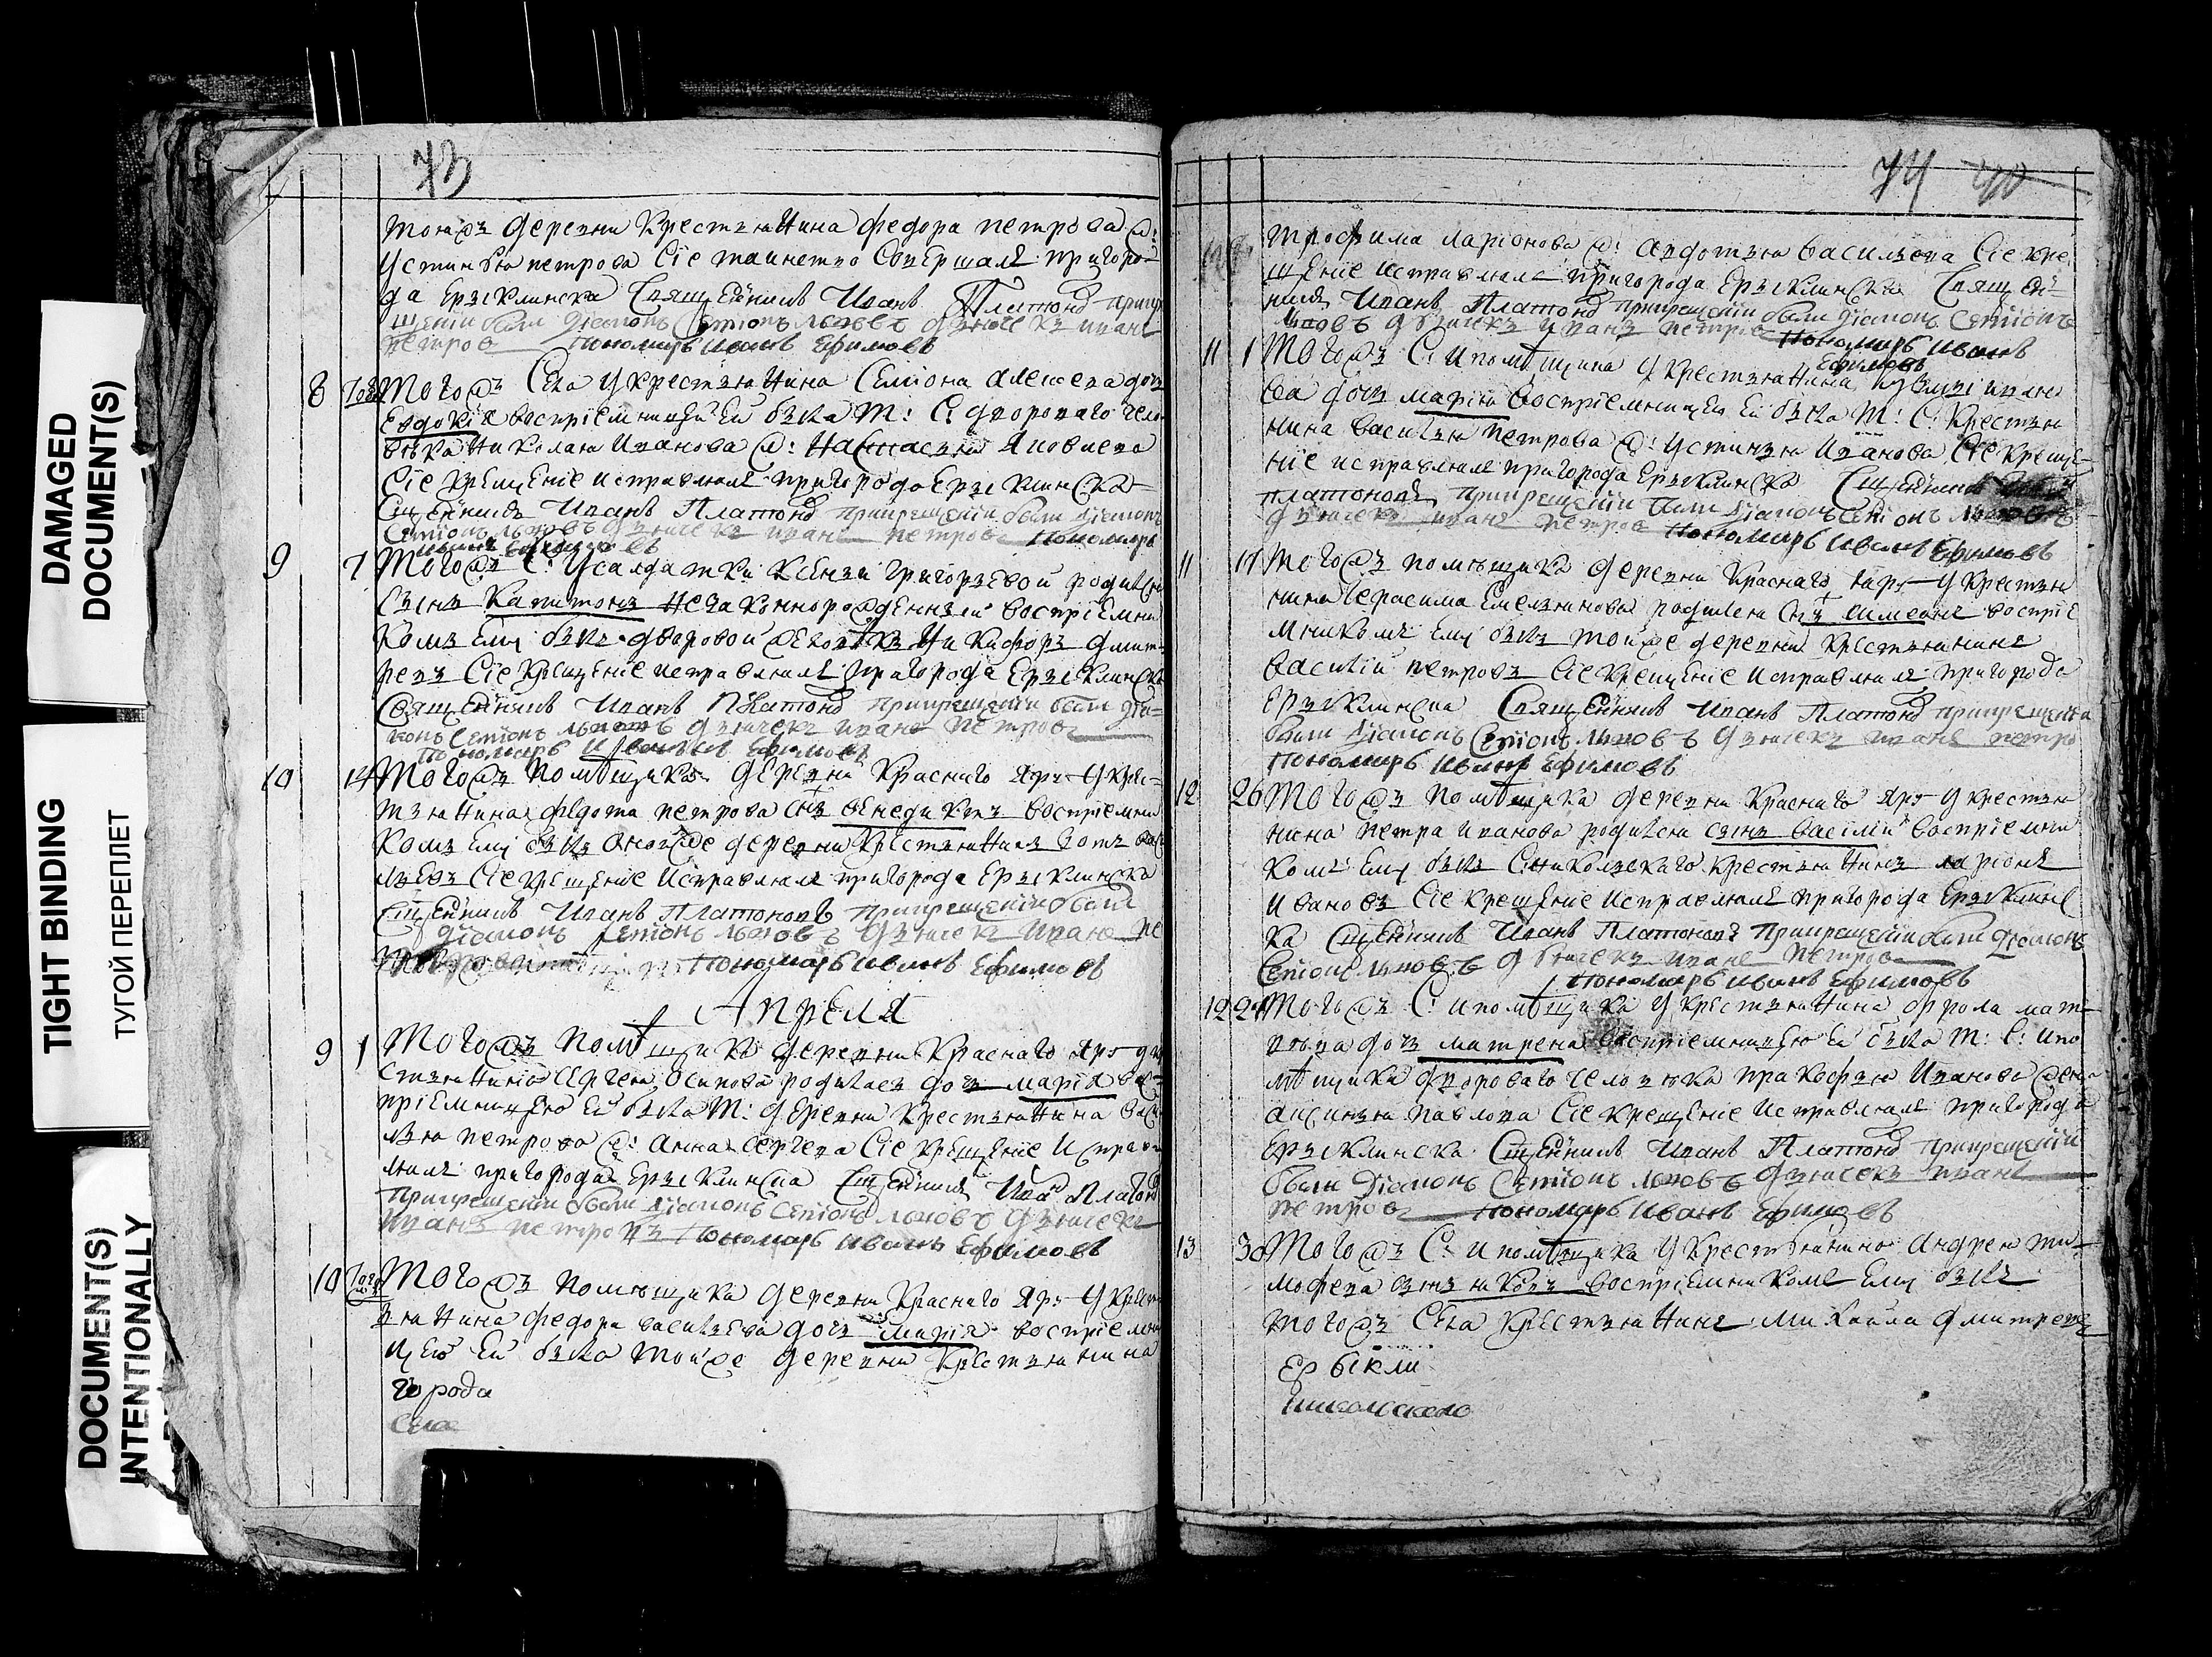 DAMAGED
DOCUMENT(S)
TIGHT BINDING
ТУГОЙ ПЕРЕПЛЕТ
DOCUMENT(S)
INTENTIONALLY
73
тояжъ деревни крестьянина федора петрова ж:
устинья петрова сіе таинство совершалъ пригоро
да Ерыклинска Священникъ Иванъ Платонов
дiаконъ Семіонъ Львовъ дьячекъ иванъ
петровъ пономарь иванъ Ефимовъ
8 Тогож Тогожъ Села у крестьянина Семiона алексева дочь
Евдокiя воспрiемницей ей была т: с: двороваго чело
века николая Иванова ж: Настасья Яковлева
Сіе крещеніе исправлялъ пригорода Ерыклинска
Сщенникъ Иванъ Платонов при крещеніи были діаконъ
Семіонъ Львовъ дьячекъ иванъ петровъ пономарь
иванъ Ефимовъ
9 7 Тогожъ С: у салдатки Ксеньи григорьевой родился
сынъ Капитонъ незаконнорожденный воспріемни
комъ ему былъ дворовой человекъ Никифоръ дмит
ревъ Сіе крещеніе исправлялъ пригорода Ерыклинска
Священникъ Иванъ Платонов при крещеніи были діа
конъ Семіонъ Львовъ дьячекъ иванъ петровъ
пономарь Иванъ Ефимовъ
10 14 Тогожъ помѣщика деревни Краснаго Яру у крес
тьянина федота петрова снъ венедиктъ воспріемни
комъ ему былъ оной же деревни крестьянинъ
Сіе крещеніе исправлялъ пригорода Ерыклинска
Сщенникъ Иванъ Платоновъ при крещеніи были
діаконъ Семіонъ Львовъ дьячекъ Иванъ пе
пономарь иванъ Ефимовъ
Апреля
9 1 Тогожъ помѣщика деревни Краснаго Яру у кре
стьянина Сергея Осипова родилась дочь марiя вос
пріемницею ей была т: деревни крестьянина васи
лья петрова ж: анна сергева Сіе крещеніе исправ
лялъ пригорода Ерыклинска Сщенникъ Иван Платон
при крещеніи были діаконъ Семіонъ Львовъ дьячекъ
иванъ петровъ пономарь иванъ Ефимовъ
10 Тогож Тогожъ помѣщика деревни Краснаго Яру у крест
янина федора васильева дочь марія воспріемни
цею ей была тойже деревни крестьянина
города
Села
74 40
трофима ларіонова ж: авдотья васильева Сіе кре
щеніе исправлялъ пригорода Ерыклинска Священ
никъ Иванъ Платонов при крещеніи были діаконъ Семіонъ
Львовъ дьячекъ иванъ петровъ пономарь иванъ
Ефимовъ
11 1 Тогожъ С: и помѣщика у крестьянина Кузмы ивано
ва дочь марія воспріемницею ей была т: С: крестья
нина василья петрова ж: устинья Иванова Сіе креще
ніе исправлялъ пригорода Ерыклинска Сщенникъ
платоновъ при крещеніи были діаконъ Семіонъ Львовъ
дьячекъ иванъ петровъ пономарь иванъ Ефимовъ
11 17 Тогожъ помѣщика деревни Краснаго яру у крестья
нина Герасима Емельянова родился снъ симеонъ воспріе
мникомъ ему былъ тойже деревни крестьянинъ
василій петровъ Сіе крещеніе исправлялъ пригорода
Ерыклинска Священникъ Иванъ Платонов при крещеніи
были діаконъ Семіонъ Львовъ дьячекъ иванъ петро
пономарь иванъ Ефимовъ
12 26 Тогожъ помѣщика деревни Краснаго Яру у крестья
нина петра иванова родился сынъ василій воспріемни
комъ ему былъ С: никольскаго крестьянинъ ларіонъ
Ивановъ Сіе крещеніе исправлялъ пригорода Ерыклинс
ка Сщенникъ Иванъ Платоновъ при крещеніи были діаконъ
Семіонъ Львовъ дьячекъ иванъ петровъ
пономарь иванъ Ефимовъ
12 Тогожъ С: и помѣщика у крестьянина фрола мат
вѣва дочь матрена воспріемницею ей была т: С: и по
мѣщика двороваго человѣка пракофья Иванова жена
аксинья павлова Сіе крещеніе исправлялъ пригорода
Ерыклинска Сщенникъ Иванъ Платонов при крещеніи
были діаконъ Семіонъ Львовъ дьячекъ иванъ
петровъ пономарь иванъ Ефимовъ
13 30 Тогожъ С: и помѣщика у крестьянина андрея ти
мофева сынъ воспріемникомъ ему былъ
тогожъ Села крестьянинъ михайла дмитревъ
Ерыкли
Никольскаго